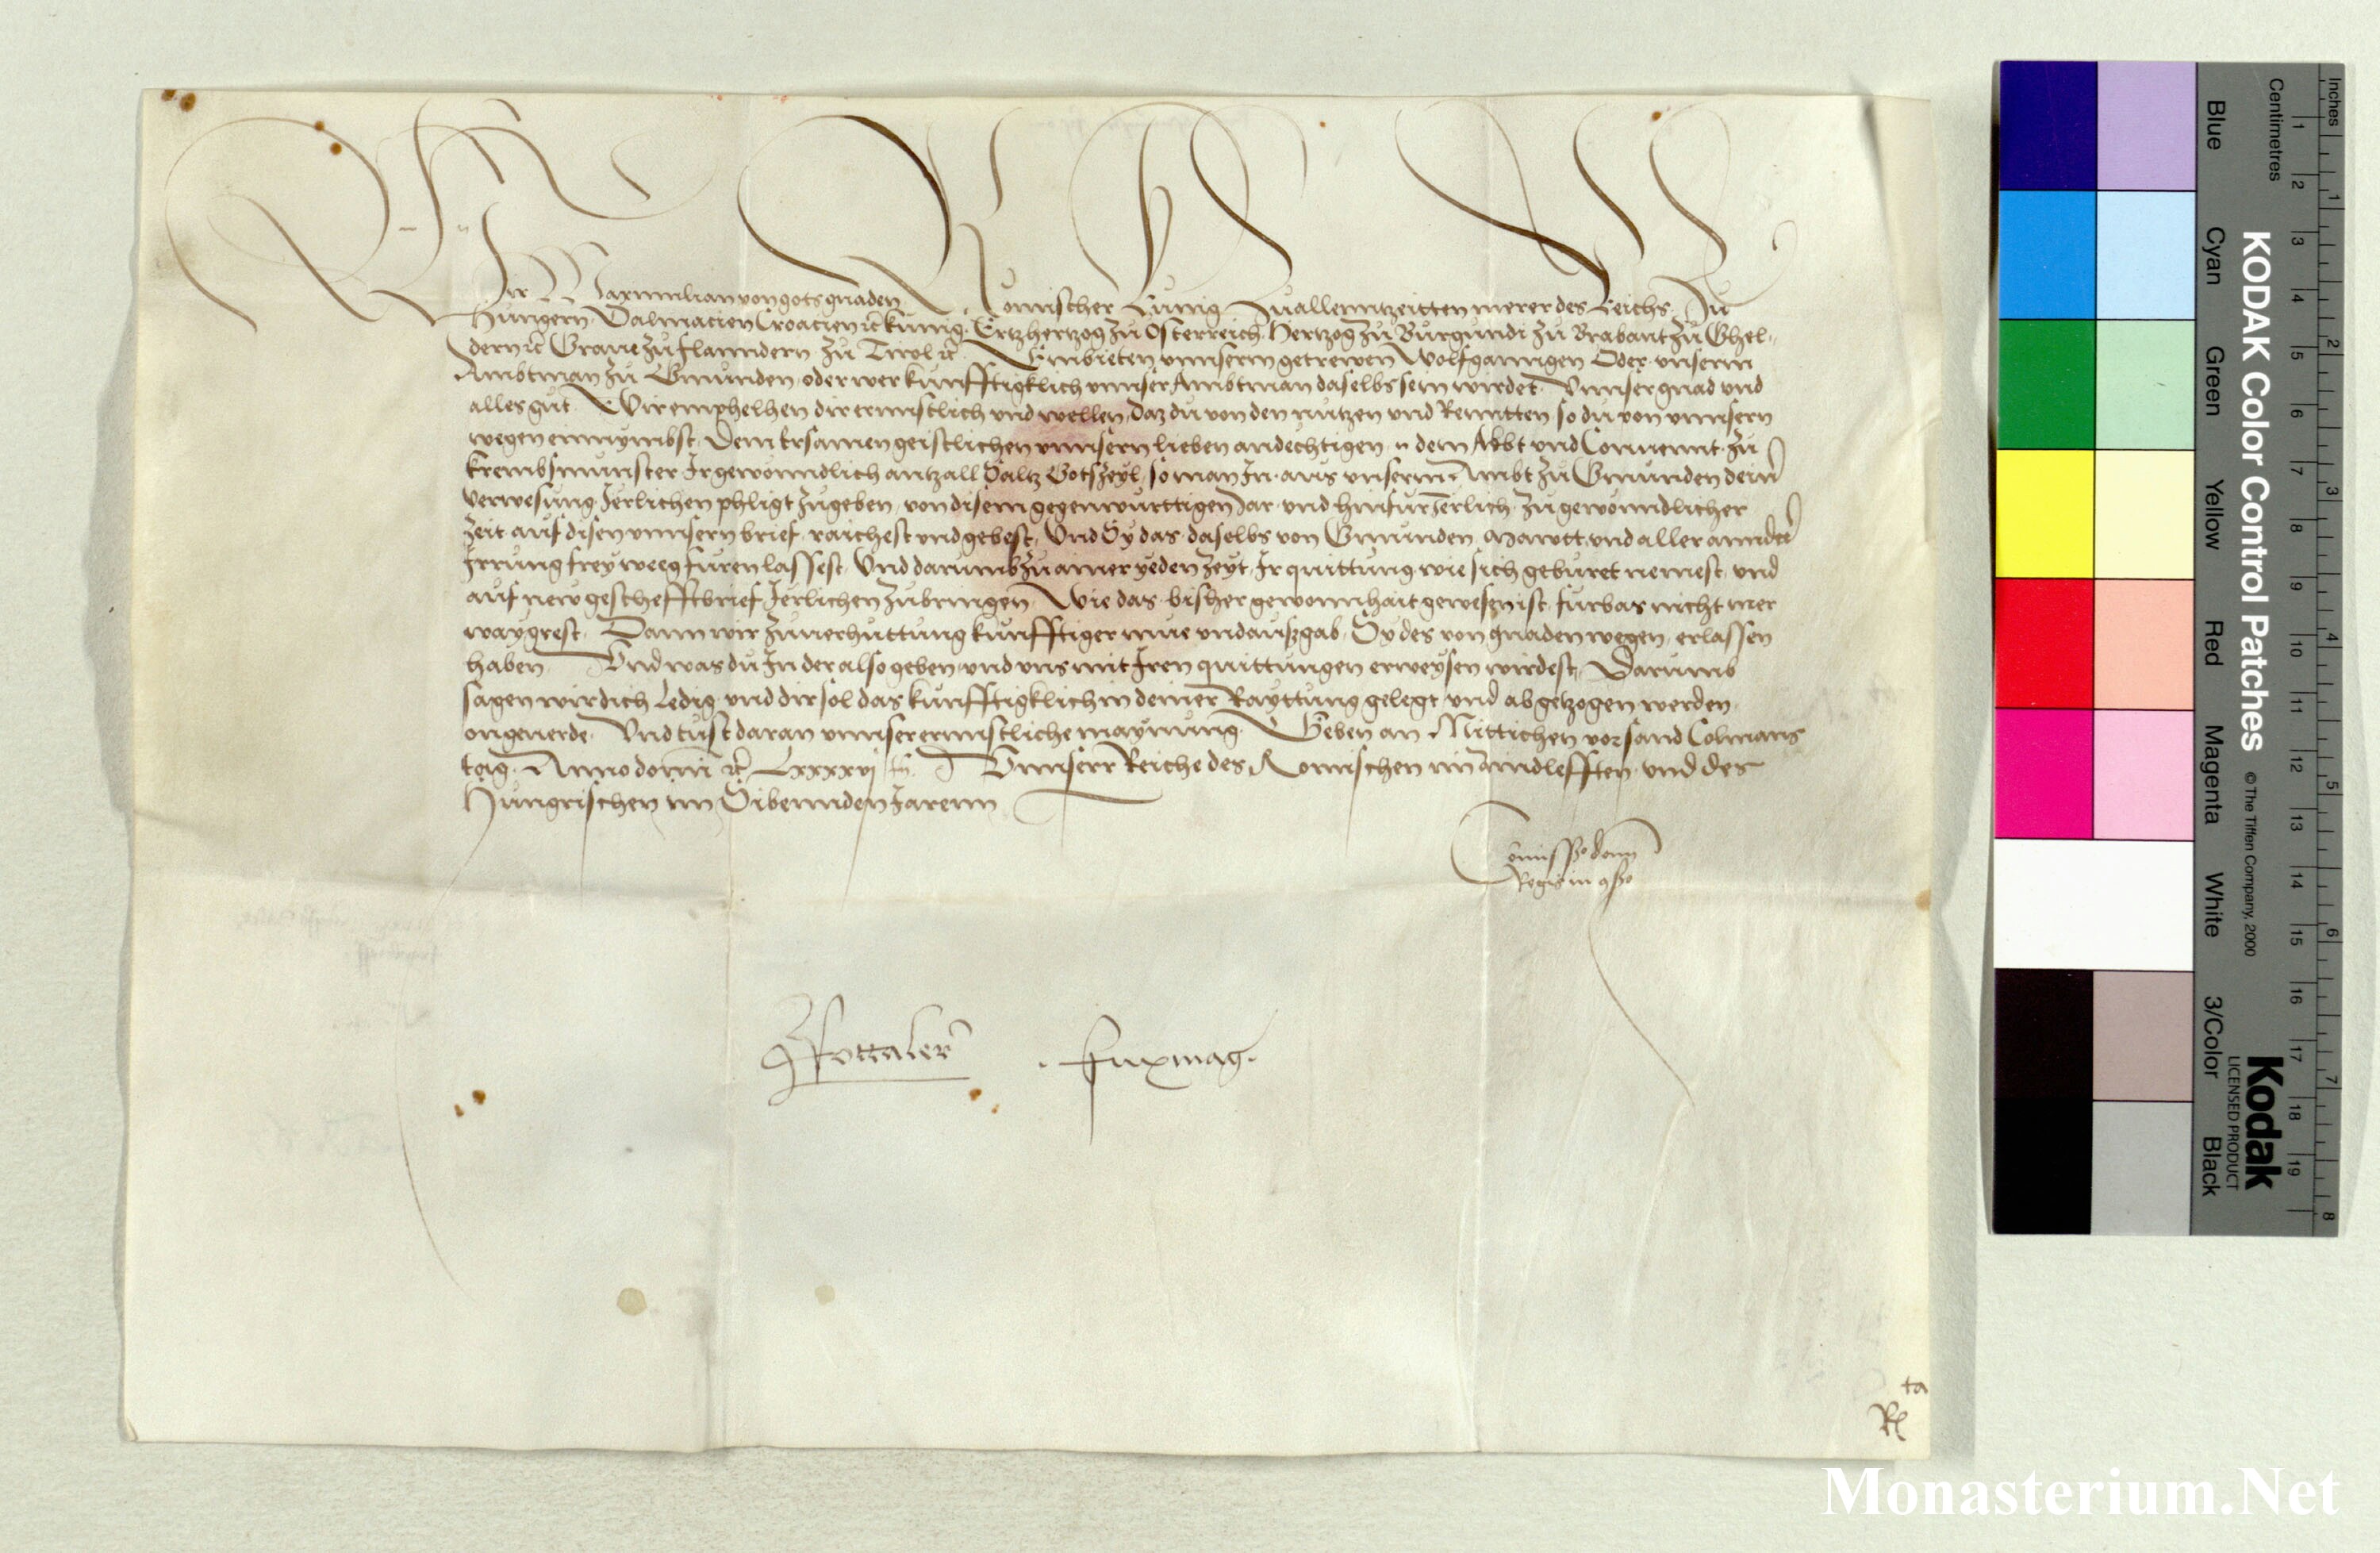 Wir Maximilian von gots gnaden Romischer Kunig zu allenntzeitten merer des Reichs. Zu
Hungern Dalmacien Croacien rc kunig. Ertzhertzog zu Osterreich Hertzog zu Burgundi zu Brabant zu Ghel-
dern rc Graue zu flanndern zu Tirol rc. Embieten vnnserm getrewen Wolfganngen Oder vnserm
Ambtman zu Gmunden oder wer kunfftigklich vnnser Ambtman daselbs sein wirdet. Vnnser gnad vnd
alles gut. Wir emphelhen dir ernnstlich vnd wellen, daz du von den nutzen vnd Renntten so du von vnnsern
wegen einnymbst. Dem Ersamen geistlichen vnnsern lieben andechtigen .n. dem Abbt vnd Conuennt zu
krembsmunster Ir gewonndlich antzall Saltz Gotszeyl, so man In aus vnserm Ambt zu Gmunden dein
verwesung Jerlichen phligt zugeben, von disem gegenwurttigen Jar vnd hinfur Jerlich zu gewonndlicher
Zeit auf disen vnnsern brief raichest vnd gebest, Vnd Sy das daselbs von Gmunden Mawtt vnd aller annder
Irrung frey weeg furen lassest. Vnd darumb zu ainer yeden Zeyt Ir quittung wie sich geburet nemest, vnd
auf new geschefftbrief Jerlichen zubringen. Wie das bisher gewonnhait gewesen ist, furbas nicht mer
waygrest. Dann wir zuuerhuttung kunfftiger mue vnd außgab, Sy des von gnaden wegen erlassen
haben. Vnd was du In der also geben vnd vns mit Iren quittungen erweysen wirdest, Darumb
sagen wir dich ledig vnd dir sol das kunfftigklich in deiner Rayttung gelegt vnd abgetzogen werden
ongeuerde. Vnd tust daran vnnser ernnstliche maynung. Geben an Mittichen vor sand Colmans
tag. Anno domini rc Lxxxxvj Vnnserr Reiche des Romischen im aindlefften vnd des
Hungrischen im Sibennden Jarenn
Comissio domini
Regis in consilio
Rottaler
. Fuxmag.
Rta
KODAK Color Control Patches
© The Tiffen Company, 2000
Kodak
LICENSED PRODUCT
Blue Cyan Green Yellow Red Magenta White 3/Color Black
Inches 1 2 3 4 5 6 7 8
Centimetres 1 2 3 4 5 6 7 8 9 10 11 12 13 14 15 16 17 18 19
Monasterium.Net